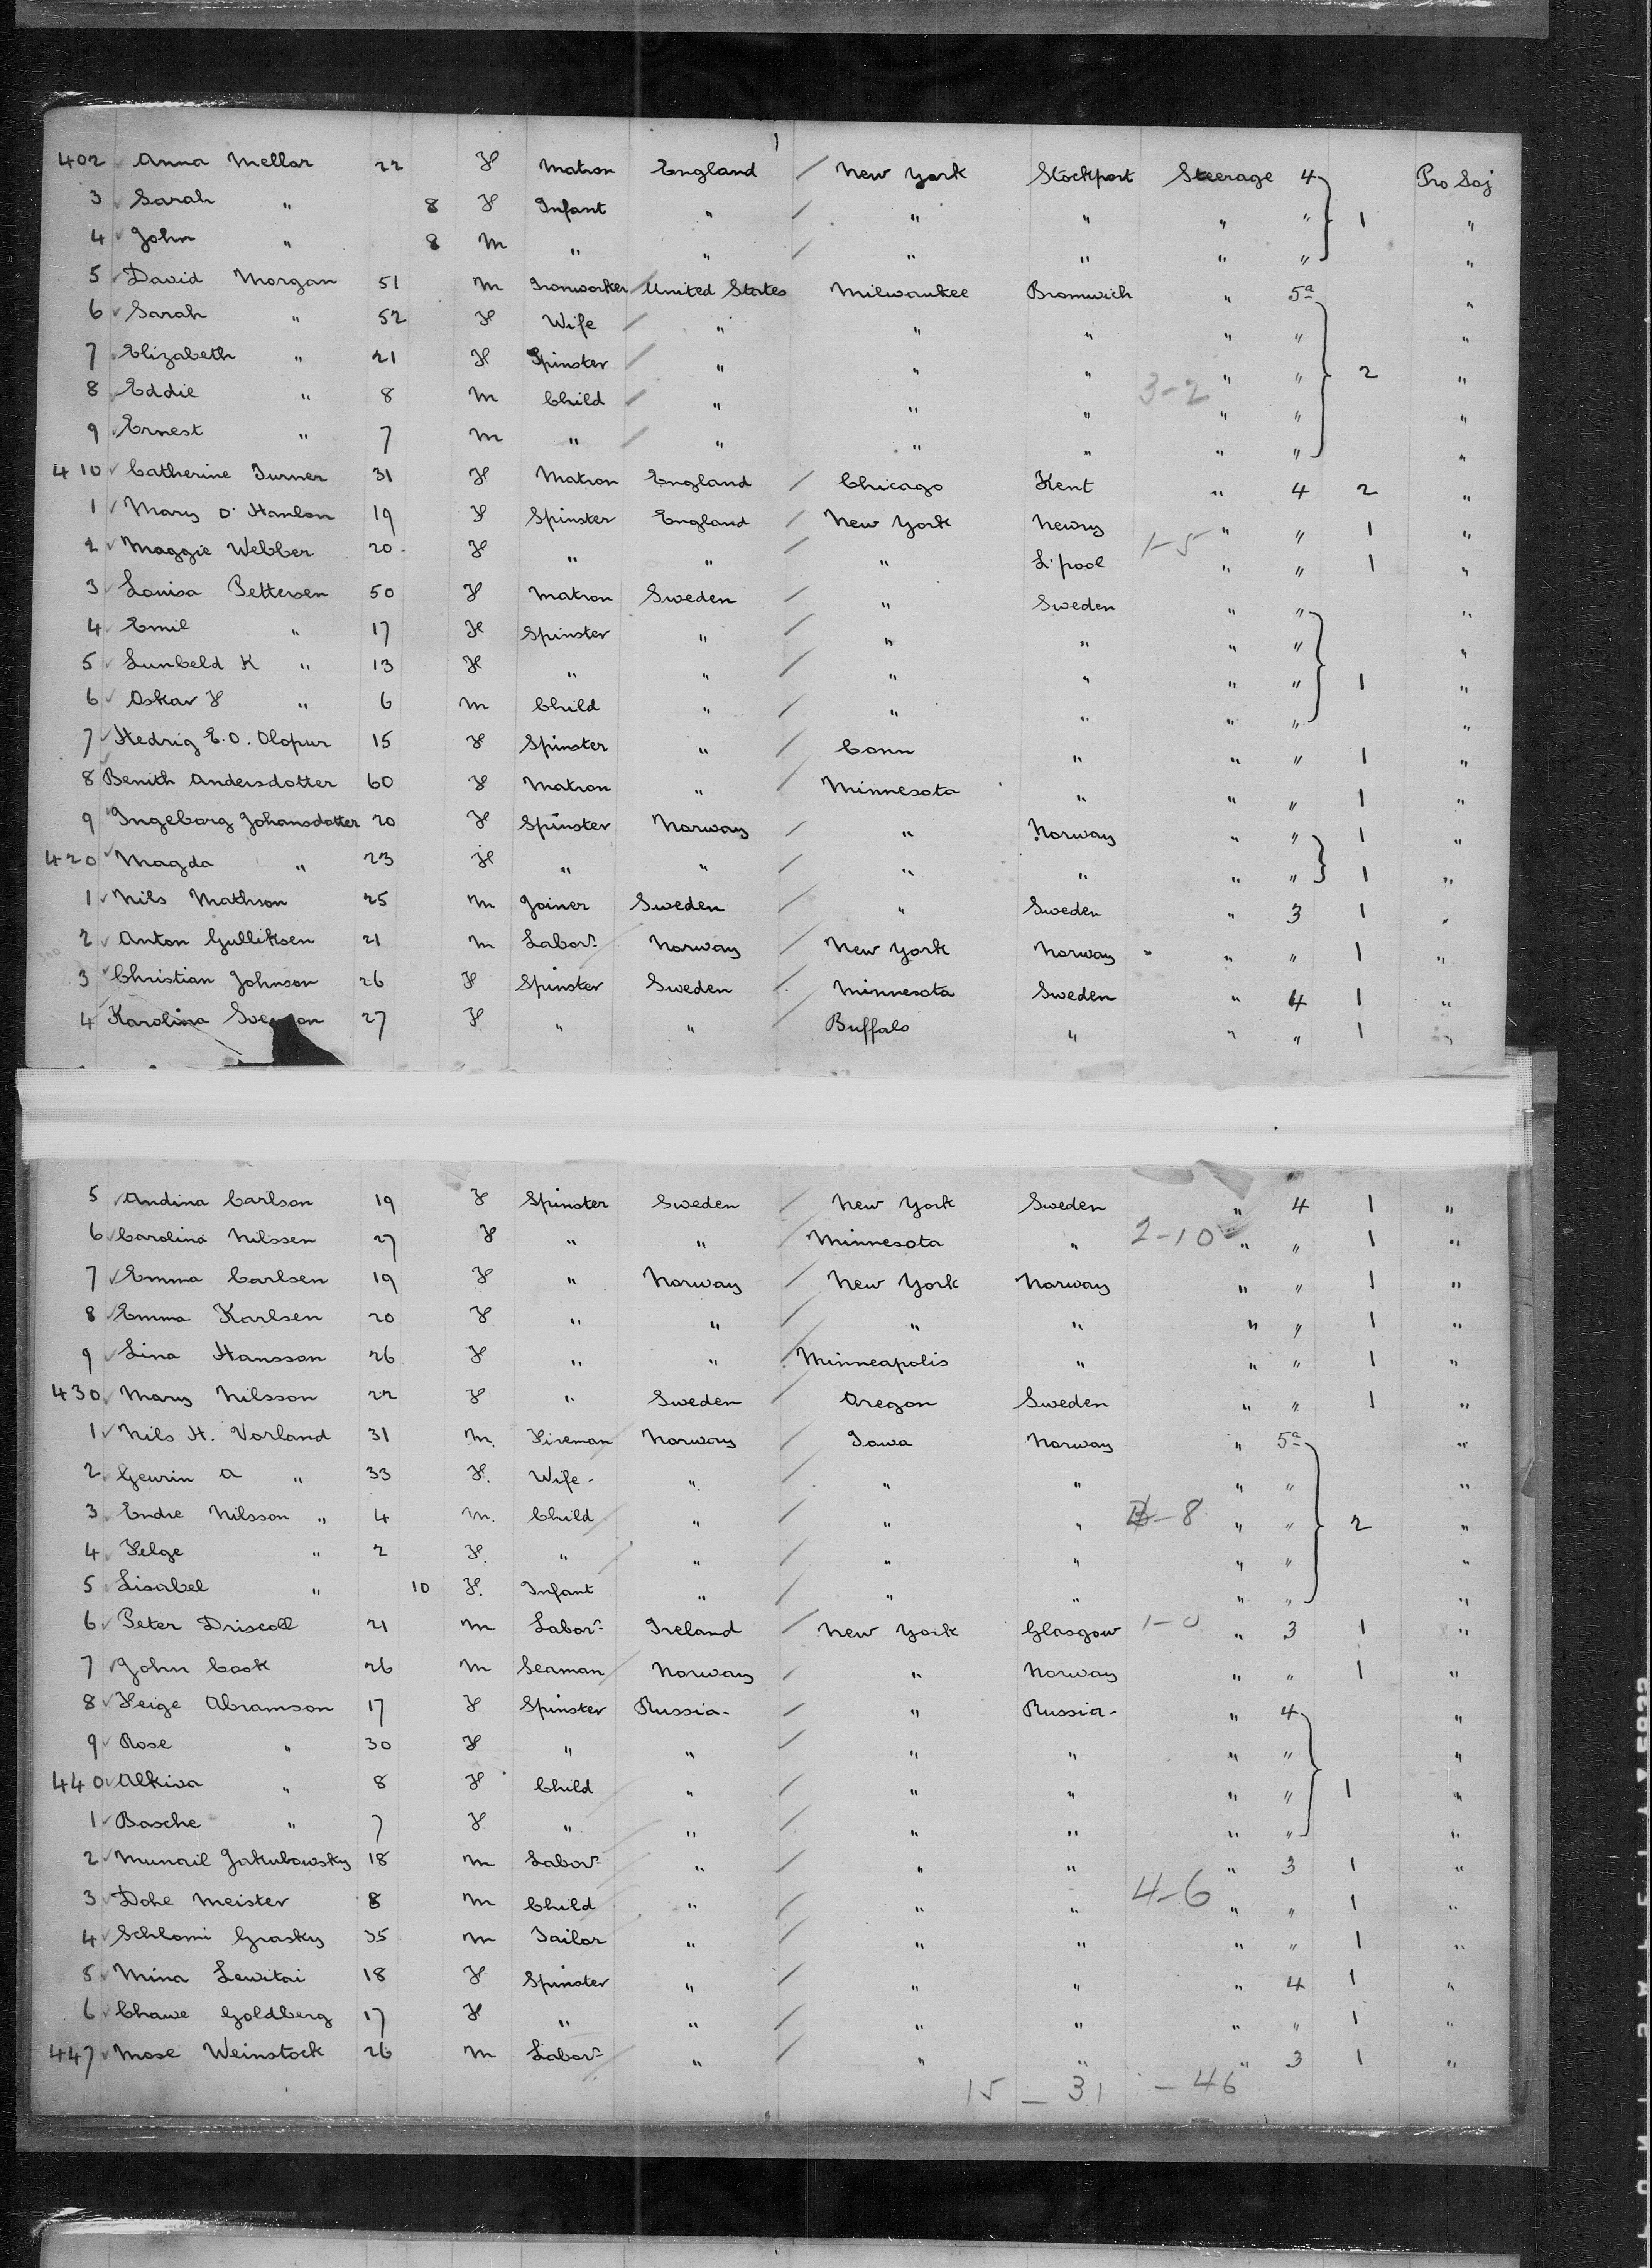 402 Anna Mellor 22 F Matron England / New York Stockport Steerage 4 Pro Soj
3 Sarah " 8 F Infant " / " " " " 1 "
4 John " 8 M " " / " " " " "
5 David Morgan 51 M Ironworker United States Milwaukee Bromwich " 5a "
6 Sarah " 52 F Wife / " " " " " "
7 Elizabeth " 21 F Spinster / " " " " " 2 "
8 Eddie " 8 M Child / " " " 3-2 " " "
9 Ernest " 7 M " / " " " " " "
410 Catherine Turner 31 F Matron England / Chicago Kent " 4 2 "
1 Mary O'Hanlon 19 F Spinster England / New York Newry " " 1 "
2 Maggie Webber 20 F " " / " L'pool 1-5 " " 1 "
3 Louisa Pettersen 50 F Matron Sweden / " Sweden " " "
4 Emil " 17 F Spinster " / " " " " "
5 Lunbeld K " 13 F " " / " " " " 1 "
6 Oskar F " 6 M Child " / " " " " "
7 Hedrig E.O. Olopur 15 F Spinster " / Conn " " " 1 "
8 Benith Andersdotter 60 F Matron " / Minnesota " " " 1 "
9 Ingeborg Johansdotter 20 F Spinster Norway / " Norway " " 1 "
420 Magda " 23 F " " / " " " " 1 "
1 Nils Mathson 25 M Joiner Sweden / " Sweden " 3 1 "
2 Anton Gulliksen 21 M Labor. Norway / New York Norway " " 1 "
3 Christian Johnson 26 F Spinster Sweden / Minnesota Sweden " 4 1 "
4 Karolina 27 F " " / Buffalo " " " 1 "
5 Andina Carlson 19 F Spinster Sweden / New York Sweden " 4 1 "
6 Carolina Nilssen 27 F " " / Minnesota " 2-10 " " 1 "
7 Emma Carlsen 19 F " Norway / New York Norway " " 1 "
8 Emma Karlsen 20 F " " / " " " " 1 "
9 Lina Hansson 26 F " " / Minneapolis " " " 1 "
430 Mary Nilsson 22 F " Sweden / Oregon Sweden " " 1 "
1 Nils H. Vorland 31 M. Fireman Norway / Iowa Norway " 5a "
2 Geurin A " 33 F. Wife " / " " " " "
3 Endre Nilsson " 4 M. Child " / " " -8 " " 2 "
4 Felge " 2 F. " " / " " " " "
5 Lisabel " 10 F. Infant " / " " " " "
6 Peter Driscoll 21 M Labor. Ireland / New York Glasgow 1-0 " 3 1 "
7 John Cook 26 M Seaman Norway / " Norway " " 1 "
8 Feige Abramson 17 F Spinster Russia / " Russia " 4 "
9 Rose " 30 F " " / " " " " "
440 Alkiva " 8 F Child " / " " " " 1 "
1 Basche " 7 F " " / " " " " "
2 Munail Jakubowsky 18 M Labor. " / " " " 3 1 "
3 Dohe Meister 8 M Child " / " " 4-6 " " 1 "
4 Schlomi Grasky 35 M Tailor " / " " " " 1 "
5 Mina Lewitai 18 F Spinster " / " " " 4 1 "
6 Chawe Goldberg 17 F " " / " " " " 1 "
447 Mose Weinstock 26 M Labor. " / " " " 3 1 "
15 - 31 - 46